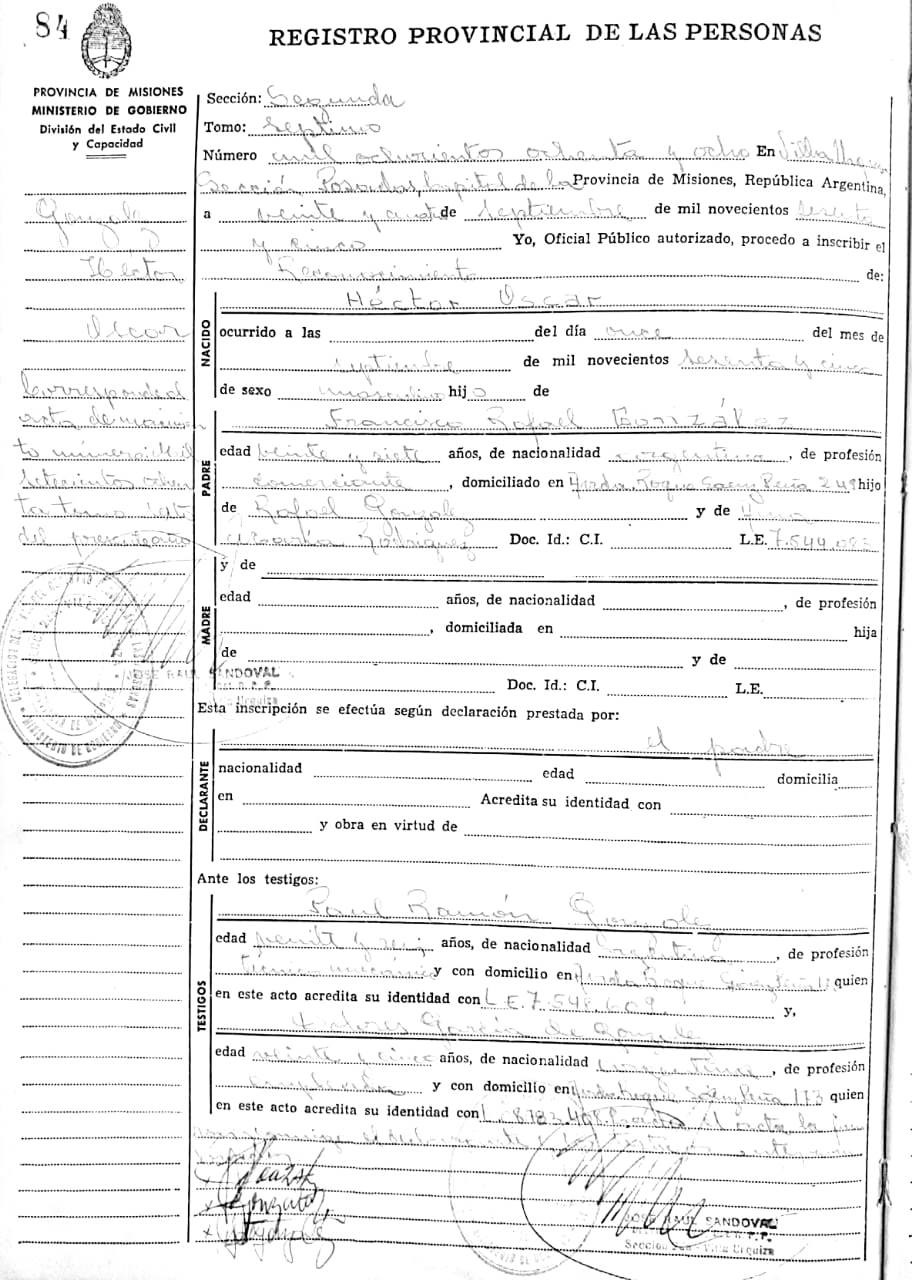 84
REGISTRO PROVINCIAL DE LAS PERSONAS
PROVINCIA DE MISIONES
MINISTERIO DE GOBIERNO
División del Estado Civil
y Capacidad
Gonzalez
Hector
Oscar
Corresponde al
acta de nacimien
to número mil
setecientos ochen
ta tomo
del presente año
Sección: Segunda
Tomo: Septimo
Número mil ochocientos ochenta y ocho En Villa Urquiza
Sección Posadas, Capital de la Provincia de Misiones, República Argentina,
a veinte y cuatro de septiembre de mil novecientos sesenta
y cinco Yo, Oficial Público autorizado, procedo a inscribir el
Reconocimiento de:
NACIDO
Héctor Oscar
ocurrido a las del día once del mes de
septiembre de mil novecientos sesenta y cinco
de sexo masculino hijo de
PADRE
Francisco Rafael González
edad veinte y siete años, de nacionalidad argentina, de profesión
comerciante, domiciliado en Avda. Roque Saenz Peña 249 hijo
de Rafael Gonzalez y de
Rodriguez Doc. Id.: C.I. L.E. 7.544.083
MADRE
y de
edad años, de nacionalidad , de profesión
, domiciliada en hija
de y de
Doc. Id.: C.I. L.E.
JOSE RAUL SANDOVAL
Esta inscripción se efectúa según declaración prestada por:
el padre
DECLARANTE
nacionalidad edad domicilia
en Acredita su identidad con
y obra en virtud de
Ante los testigos:
TESTIGOS
Raul Ramón Gonzalez
edad veinte y seis años, de nacionalidad argentina, de profesión
técnico mecánico y con domicilio en Avda Roque Saenz Peña quien
en este acto acredita su identidad con L.E. 7.548.609 y,
García de Gonzalez
edad veinte y cinco años, de nacionalidad argentina, de profesión
empleada y con domicilio en Avda Roque Saenz Peña 113 quien
en este acto acredita su identidad con el acta la
JOSE RAUL SANDOVAL
Sección 2da - Villa Urquiza